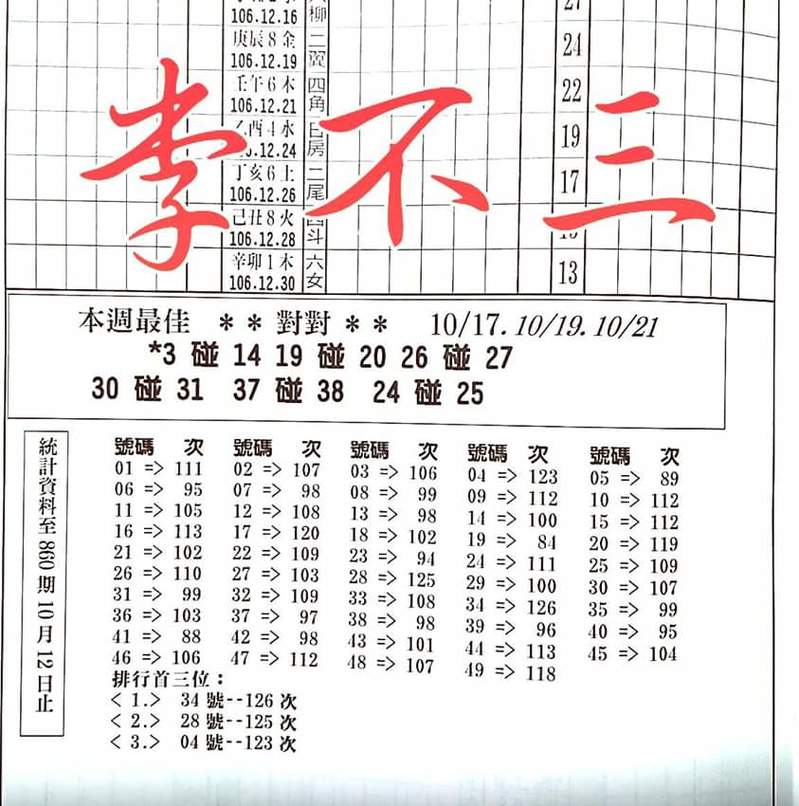 27
106.12.16
柳
庚辰8金 二 24
106.12.19 翼
壬午6木 四 22
106.12.21 角
乙酉4水 日 19
.12.24 房
丁亥6土 二 17
106.12.26 尾
己丑8火 四
106.12.28 斗
辛卯1木 六 13
106.12.30 女
李不三
本週最佳 ** 對對 ** 10/17. 10/19. 10/21
*3 碰 14 19 碰 20 26 碰 27
30 碰 31 37 碰 38 24 碰 25
統計資料至 860 期 10 月 12 日止
號碼 次 號碼 次 號碼 次 號碼 次 號碼 次
01 => 111 02 => 107 03 => 106 04 => 123 05 => 89
06 => 95 07 => 98 08 => 99 09 => 112 10 => 112
11 => 105 12 => 108 13 => 98 14 => 100 15 => 112
16 => 113 17 => 120 18 => 102 19 => 84 20 => 119
21 => 102 22 => 109 23 => 94 24 => 111 25 => 109
26 => 110 27 => 103 28 => 125 29 => 100 30 => 107
31 => 99 32 => 109 33 => 108 34 => 126 35 => 99
36 => 103 37 => 97 38 => 98 39 => 96 40 => 95
41 => 88 42 => 98 43 => 101 44 => 113 45 => 104
46 => 106 47 => 112 48 => 107 49 => 118
排行首三位：
< 1.> 34 號--126 次
< 2.> 28 號--125 次
< 3.> 04 號--123 次